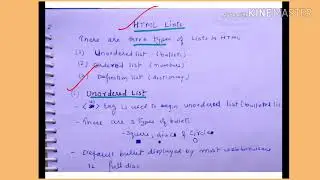 HTML Lists
KINEMASTER
There are three types of Lists in HTML
(1) Unordered list (bullets)
(2) Ordered list (numbers)
(3) Definition list (dictionary)
(1) Unordered List
- <ul> tag is used to begin unordered list (bulleted list
- There are 3 types of bullets
- Square, discs & Circles
- Default bullet displayed by most webbrowsers
is full disc